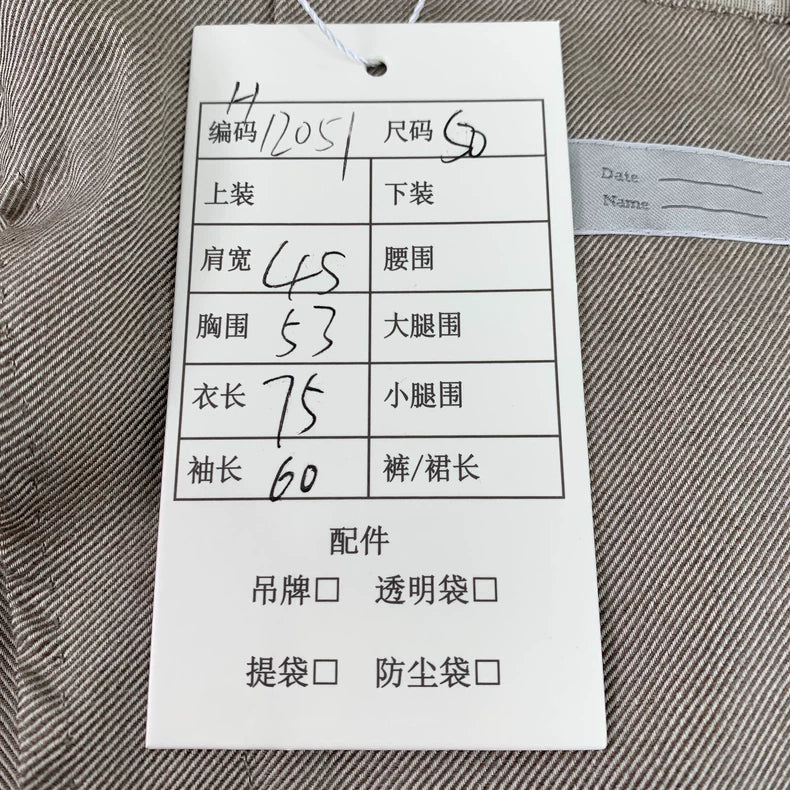 H
编码 12051 尺码 50
上装 下装
肩宽 45 腰围
胸围 53 大腿围
衣长 75 小腿围
袖长 60 裤/裙长
配件
吊牌□ 透明袋□
提袋□ 防尘袋□
Date
Name